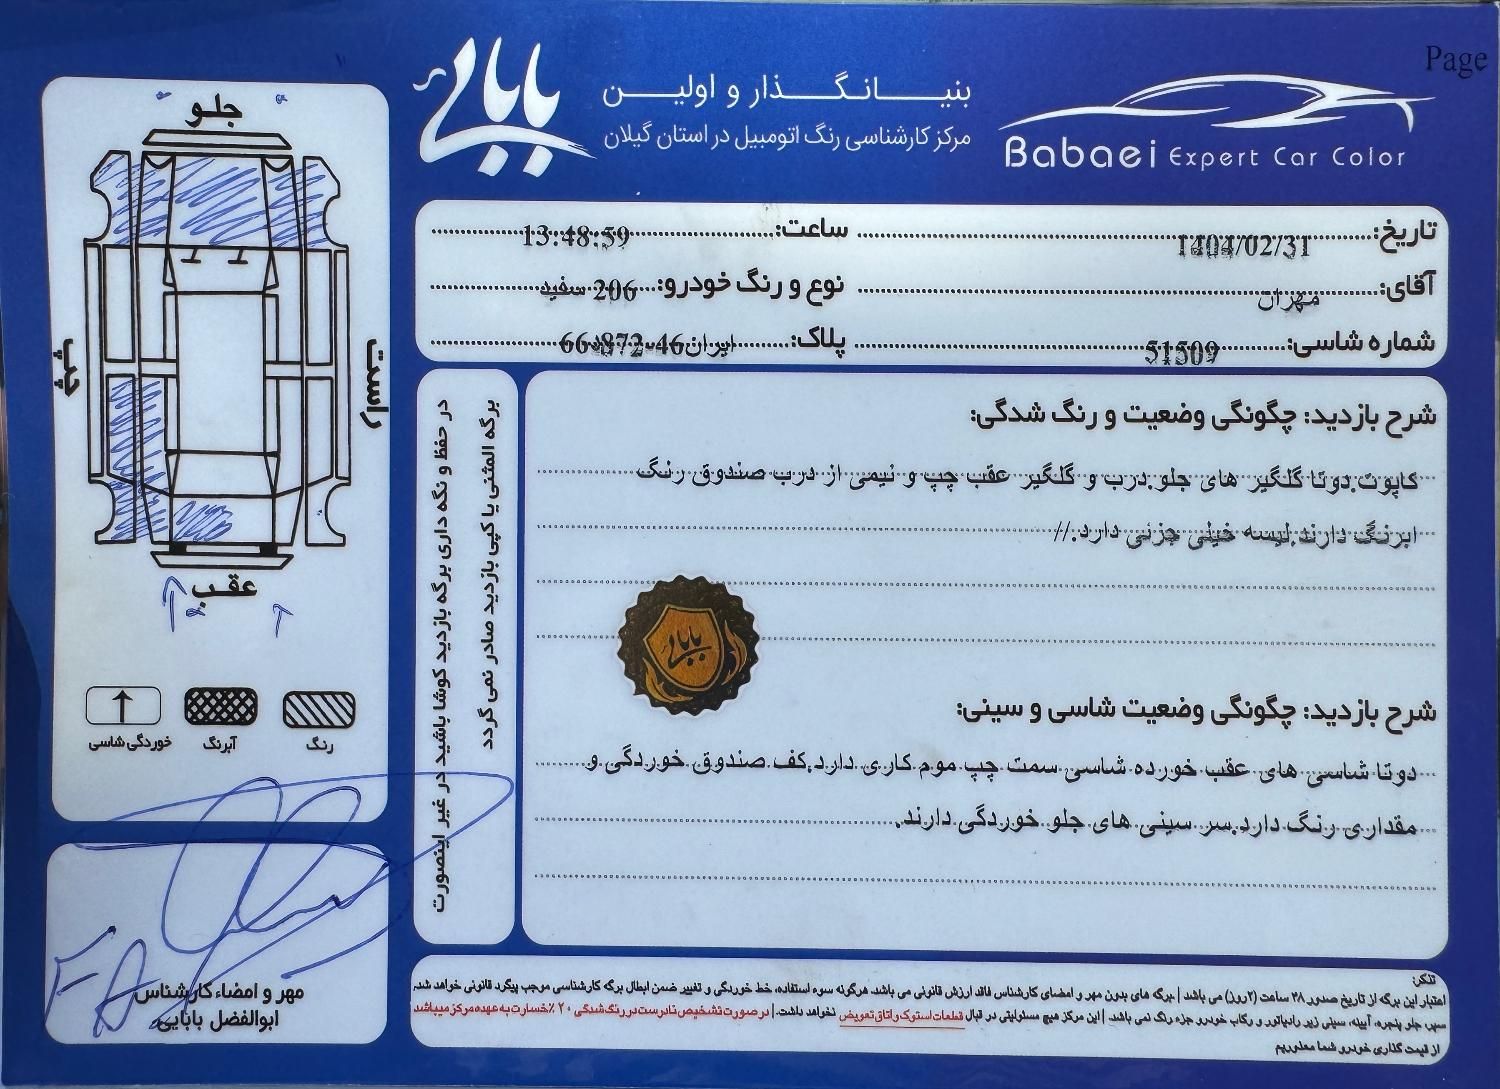 Page
بنیانگذار و اولین
مرکز کارشناسی رنگ اتومبیل در استان گیلان
بابایی
Babaei Expert Car Color
تاریخ: 1404/02/31
ساعت: 13:48:59
آقای: مهران
نوع و رنگ خودرو: 206 سفید
شماره شاسی: 51509
پلاک: ایران46-872
جلو
راست
چپ
عقب
رنگ
آبرنگ
خوردگی شاسی
مهر و امضاء کارشناس
ابوالفضل بابایی
در حفظ و نگه داری برگه بازدید کوشا باشید در غیر اینصورت
برگه المثنی یا کپی بازدید صادر نمی گردد
شرح بازدید: چگونگی وضعیت و رنگ شدگی:
کاپوت.دوتا گلگیر های جلو.درب و گلگیر عقب چپ و نیمی از درب صندوق رنگ
ابرنگ دارند.لیسه خیلی جزئی دارد.//
بابایی
شرح بازدید: چگونگی وضعیت شاسی و سینی:
دوتا شاسی های عقب خورده شاسی سمت چپ موم کاری دارد.کف صندوق خوردگی و
مقداری رنگ دارد.سر سینی های جلو خوردگی دارند.
تذکر:
اعتبار این برگه از تاریخ صدور ۴۸ ساعت (۲روز) می باشد | برگه های بدون مهر و امضای کارشناس فاقد ارزش قانونی می باشد. هرگونه سوء استفاده، خط خوردگی و تغییر ضمن ابطال برگه کارشناسی موجب پیگرد قانونی خواهد شد.
سپر، جلو پنجره، آیینه، سینی زیر رادیاتور و رکاب خودرو جزء رنگ نمی باشد. | این مرکز هیچ مسئولیتی در قبال قطعات استوک و اتاق تعویض نخواهد داشت. | در صورت تشخیص نادرست در رنگ شدگی ۲۰٪ خسارت به عهده مرکز میباشد
از قیمت گذاری خودرو شما معذوریم